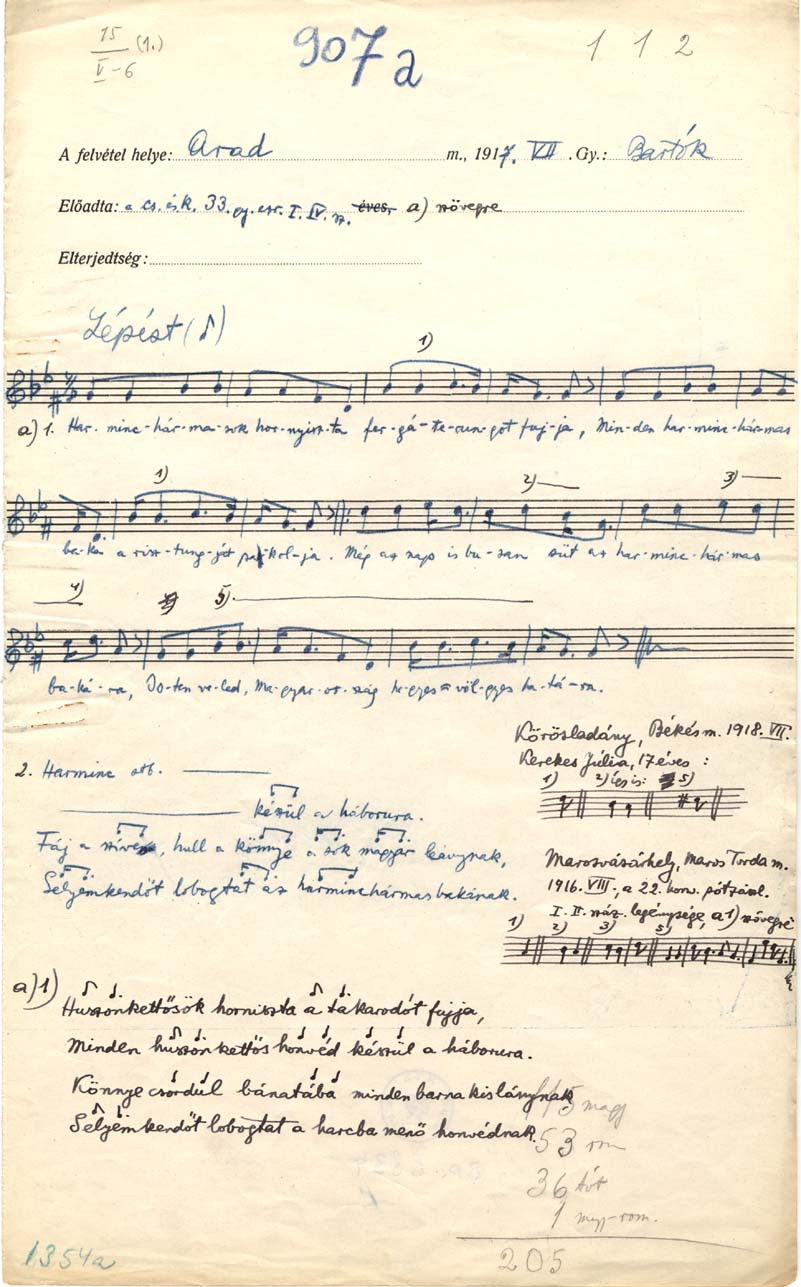 15/V-6 (1.)
907a
112
A felvétel helye: Arad m., 1917. VII. Gy.: Bartók
Előadta: a cs. és k. 33. gy. ezr. I. IV. sz. éves, a) szövegre
Elterjedtség:
Lépést (♪)
1)
a) 1. Har-minc-hár-ma-sok hor-nyisz-ta fer-gá-te-run-got fuj-ja, Min-den har-minc-hár-mas
1) 2) 3)
ba-ka a risz-tung-ját pa-kol-ja. Még az nap is bu-san süt az har-minc-hár-mas
4) 5)
ba-ká-ra, Is-ten ve-led, Ma-gyar-or-szág he-gyes-völ-gyes ha-tá-ra.
Körösladány, Békés m. 1918. VII.
Kerekes Júlia, 17 éves:
1) 2) így is: 5)
2. Harminc stb.
készül a háborura.
Fáj a szíve, hull a könnye a sok magyar leánynak,
Selyemkendőt lobogtat az harminchármas bakának.
Marosvásárhely, Maros Torda m.
1916. VIII., a 22. honv. pótzászl.
I. II. száz. legénysége, a 1) szövegre
1) 2) 3) 5)
a) 1)
Huszonkettősök horniszta a takarodót fujja,
Minden huszonkettős honvéd készül a háborura.
Könnye csordul bánatába minden barna kislánynak
Selyemkendőt lobogtat a harcba menő honvédnak.
magy
53 rom
36 tót
1 magy-rom.
205
1354a